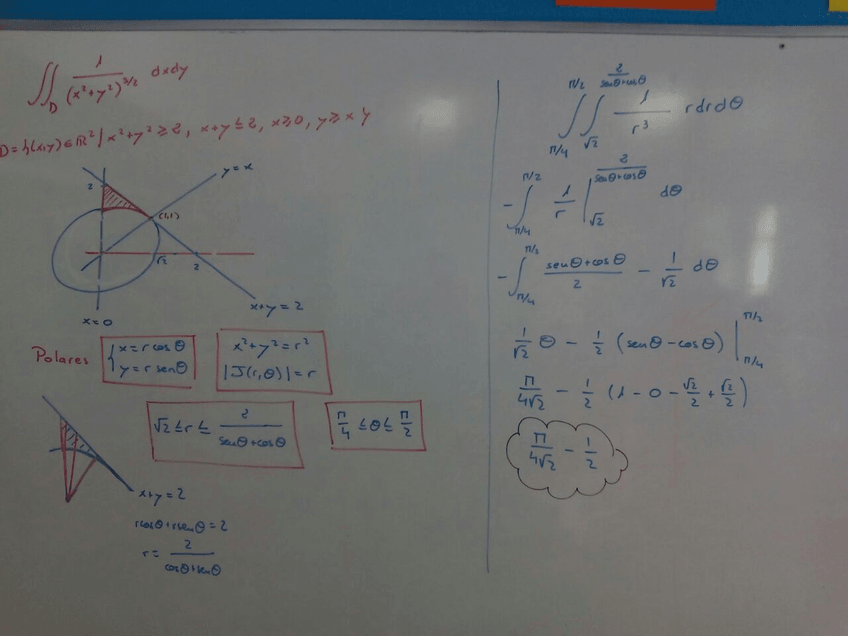 ∬_D 1/(x²+y²)^{3/2} dxdy
D={(x,y)∈ℝ² / x²+y²≥2, x+y≤2, x≥0, y≥x}
y=x
2
(1,1)
√2
2
x+y=2
x=0
Polares { x=r cosθ
y=r senθ
x²+y²=r²
|J(r,θ)|=r
√2 ≤ r ≤ 2/(senθ+cosθ)
π/4 ≤ θ ≤ π/2
x+y=2
rcosθ+rsenθ=2
r= 2/(cosθ+senθ)
∫_{π/4}^{π/2} ∫_{√2}^{2/(senθ+cosθ)} 1/r³ r dr dθ
-∫_{π/4}^{π/2} 1/r |_{√2}^{2/(senθ+cosθ)} dθ
-∫_{π/4}^{π/2} (senθ+cosθ)/2 - 1/√2 dθ
1/√2 θ - 1/2 (senθ-cosθ) |_{π/4}^{π/2}
π/(4√2) - 1/2 (1-0-√2/2+√2/2)
π/(4√2) - 1/2